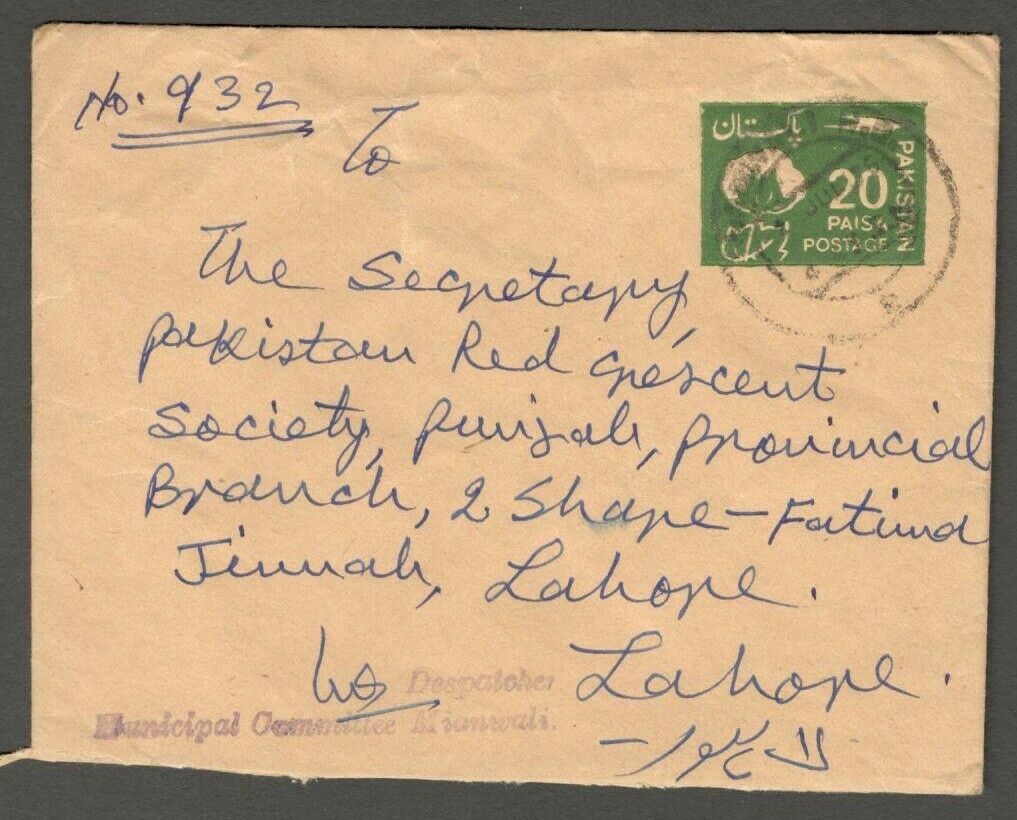 No. 932
To
پاکستان
20
PAISA
POSTAGE
PAKISTAN
The Secretary,
Pakistan Red Crescent
Society, Punjab, Provincial
Branch, 2 Share-Fatima
Jinnah, Lahore.
Lahore.
لاہور
Despatcher
Municipal Committee Mianwali.